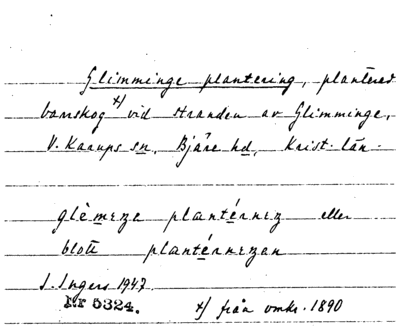 Glimminge plantering, planterad
barrskog x) vid stranden av Glimminge,
V. Karups sn, Bjäre hd, Krist. län.
glèmeŋe plantérneŋ eller
blott plantérneŋen
I. Ingers 1947
Nr 5324. x) från omkr. 1890